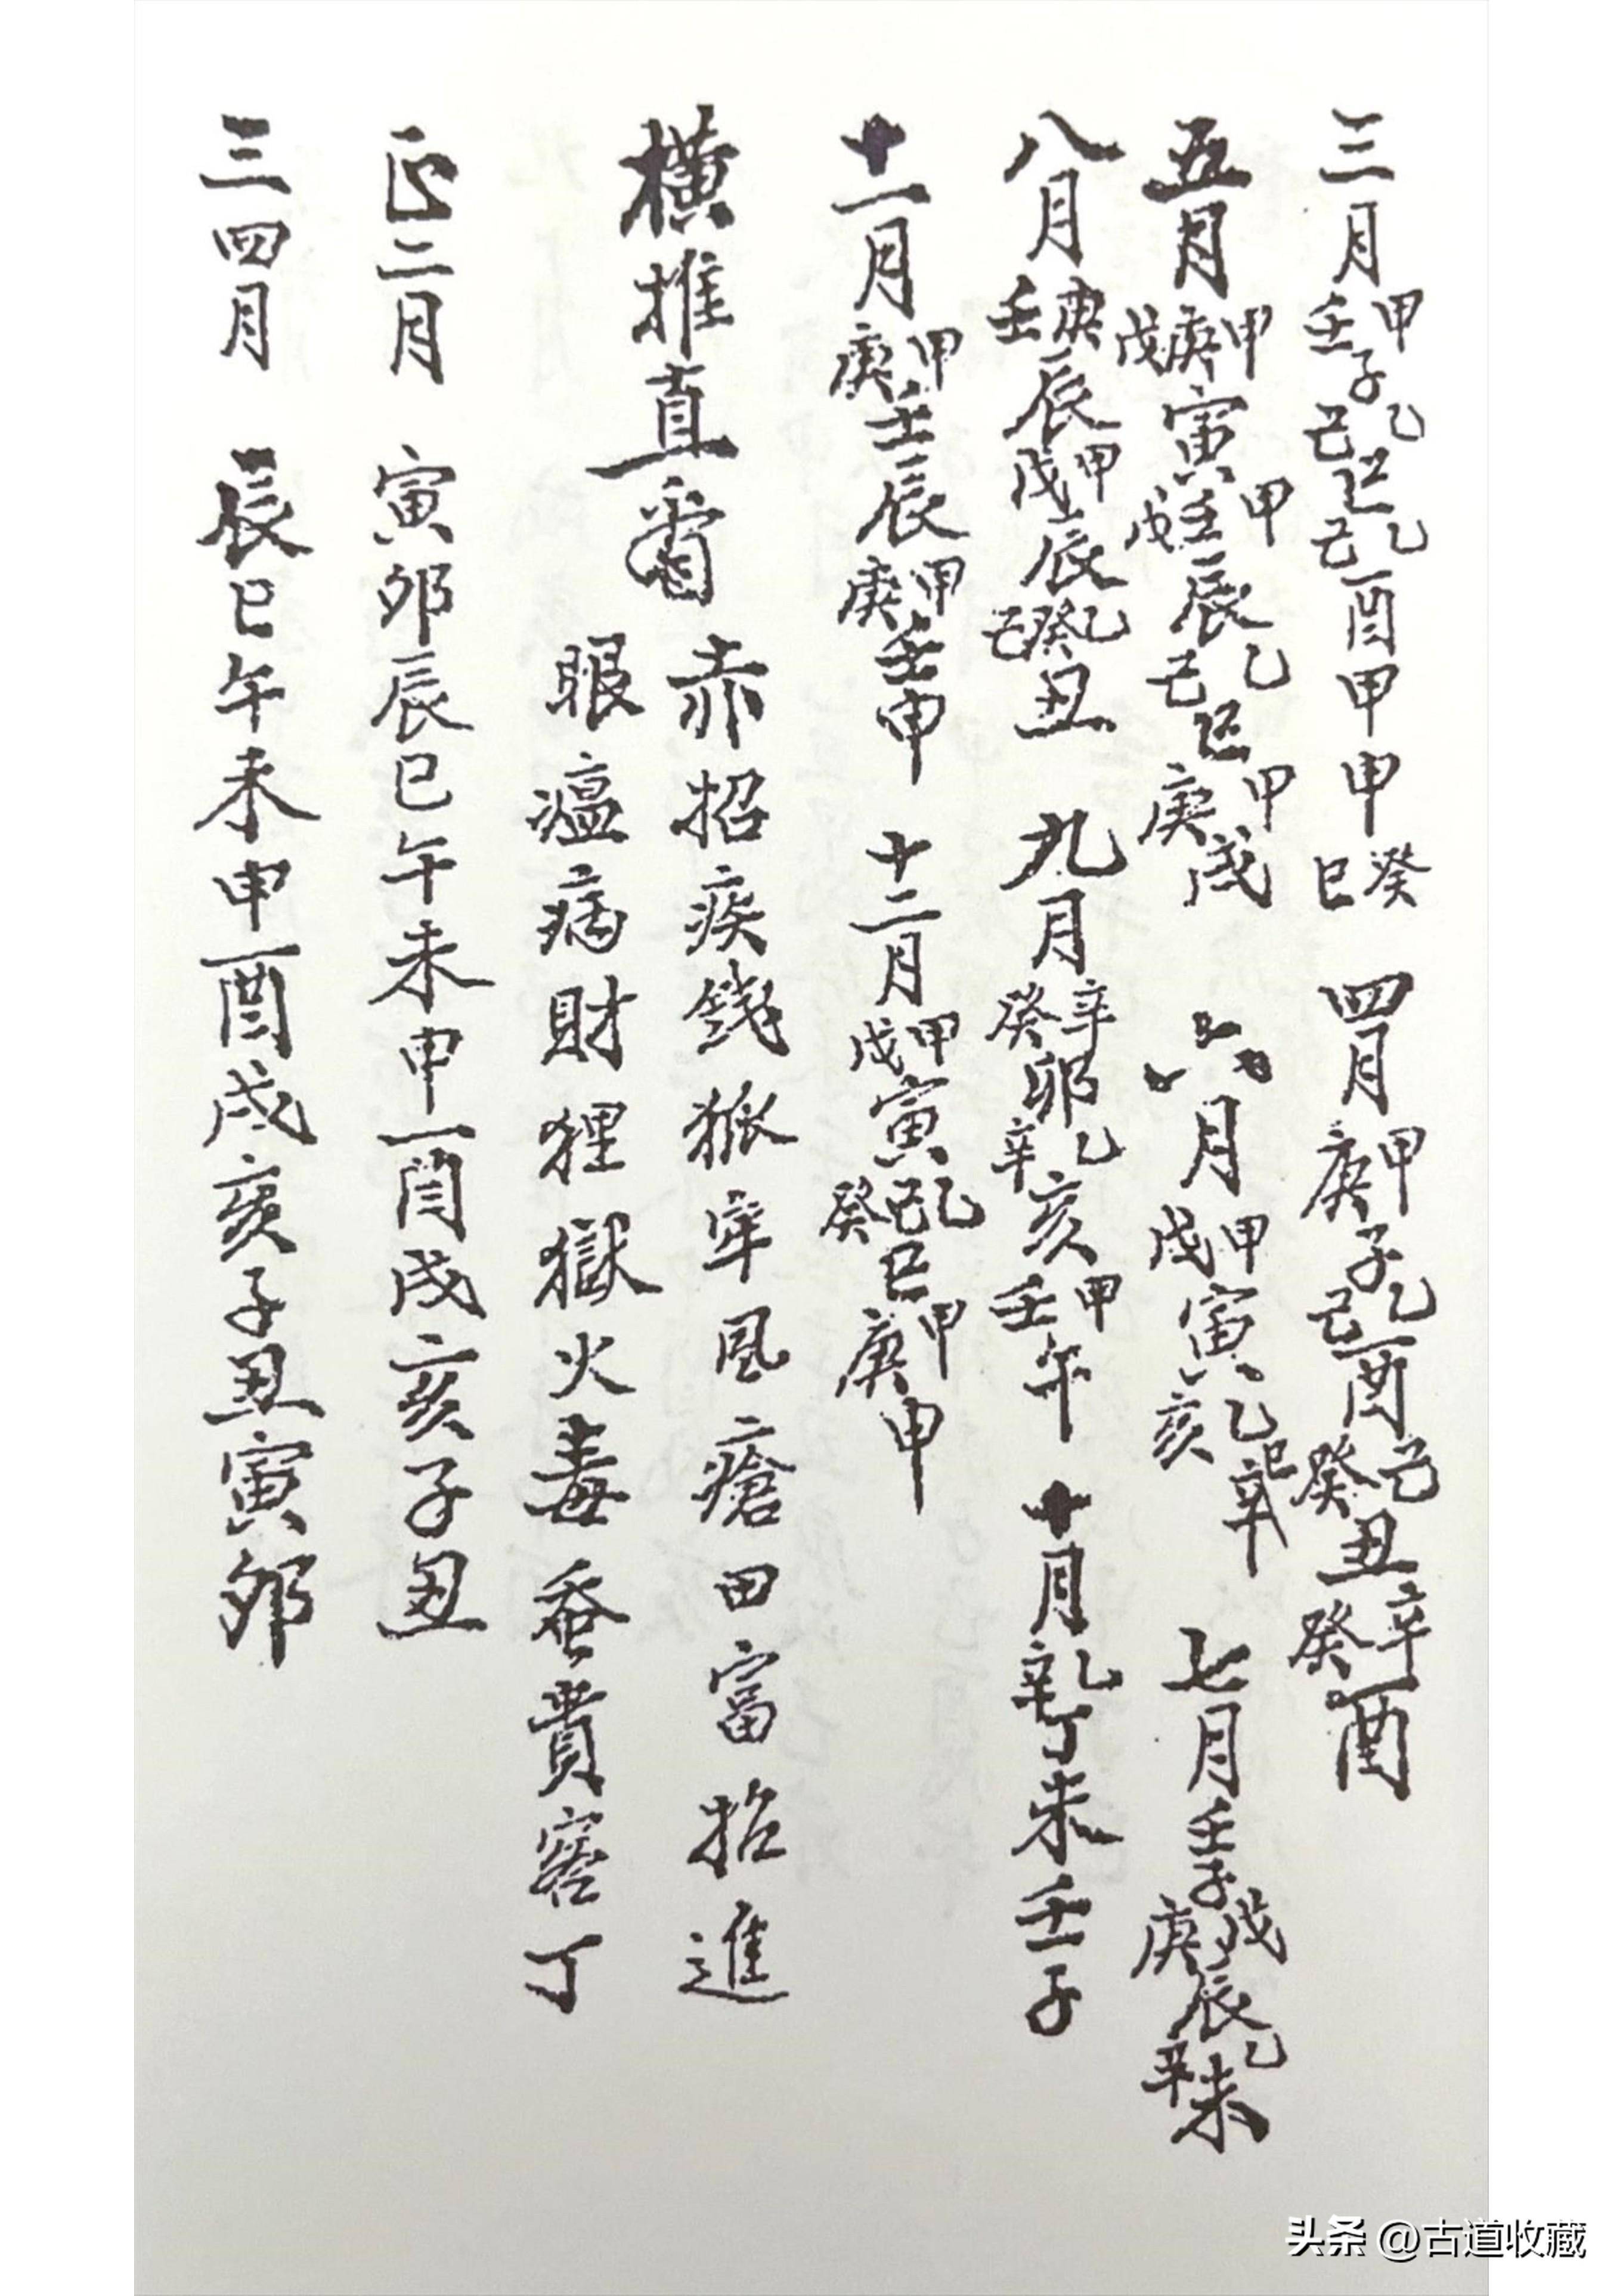 三月甲壬子乙己巳乙己酉甲申癸巳 四月甲庚子乙己酉己癸丑辛癸酉
五月甲庚戊寅甲壬戊辰乙己巳甲庚戌 六月甲戊寅乙亥己辛 七月壬子戊庚辰乙辛未
八月庚壬辰甲戊辰乙癸己丑 九月辛癸卯乙辛亥甲壬午 十月乙辛丁未壬子
十一月甲庚壬辰甲庚壬申 十二月甲戊寅乙己癸巳甲庚申
橫推直看 赤招疾錢狐牢風瘡田富招進
眼瘟病財狸獄火毒蚕貴客丁
正二月 寅卯辰巳午未申酉戌亥子丑
三四月 辰巳午未申酉戌亥子丑寅卯
头条 @古道收藏